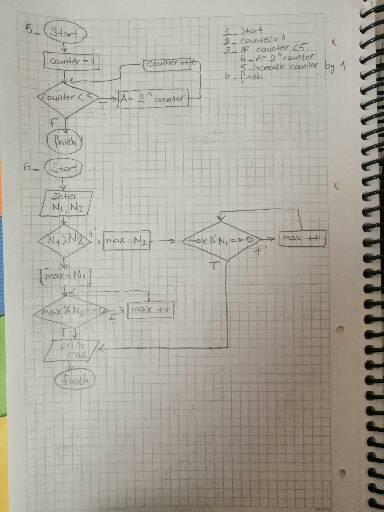 5_ Start
counter = 1
counter < 5
counter ++
A = 2 ^ counter
F
finish
1_ Start
2_ counter = 1
3_ IF counter < 5
4_ A = 2 ^ counter
5_ Increase counter by 1
6_ finish
6_ Start
Enter
N1, N2
N1 > N2
max = N2
max % N1 == 0
max ++
T
F
max = N1
max % N2 == 0
F
max ++
T
print
max
finish